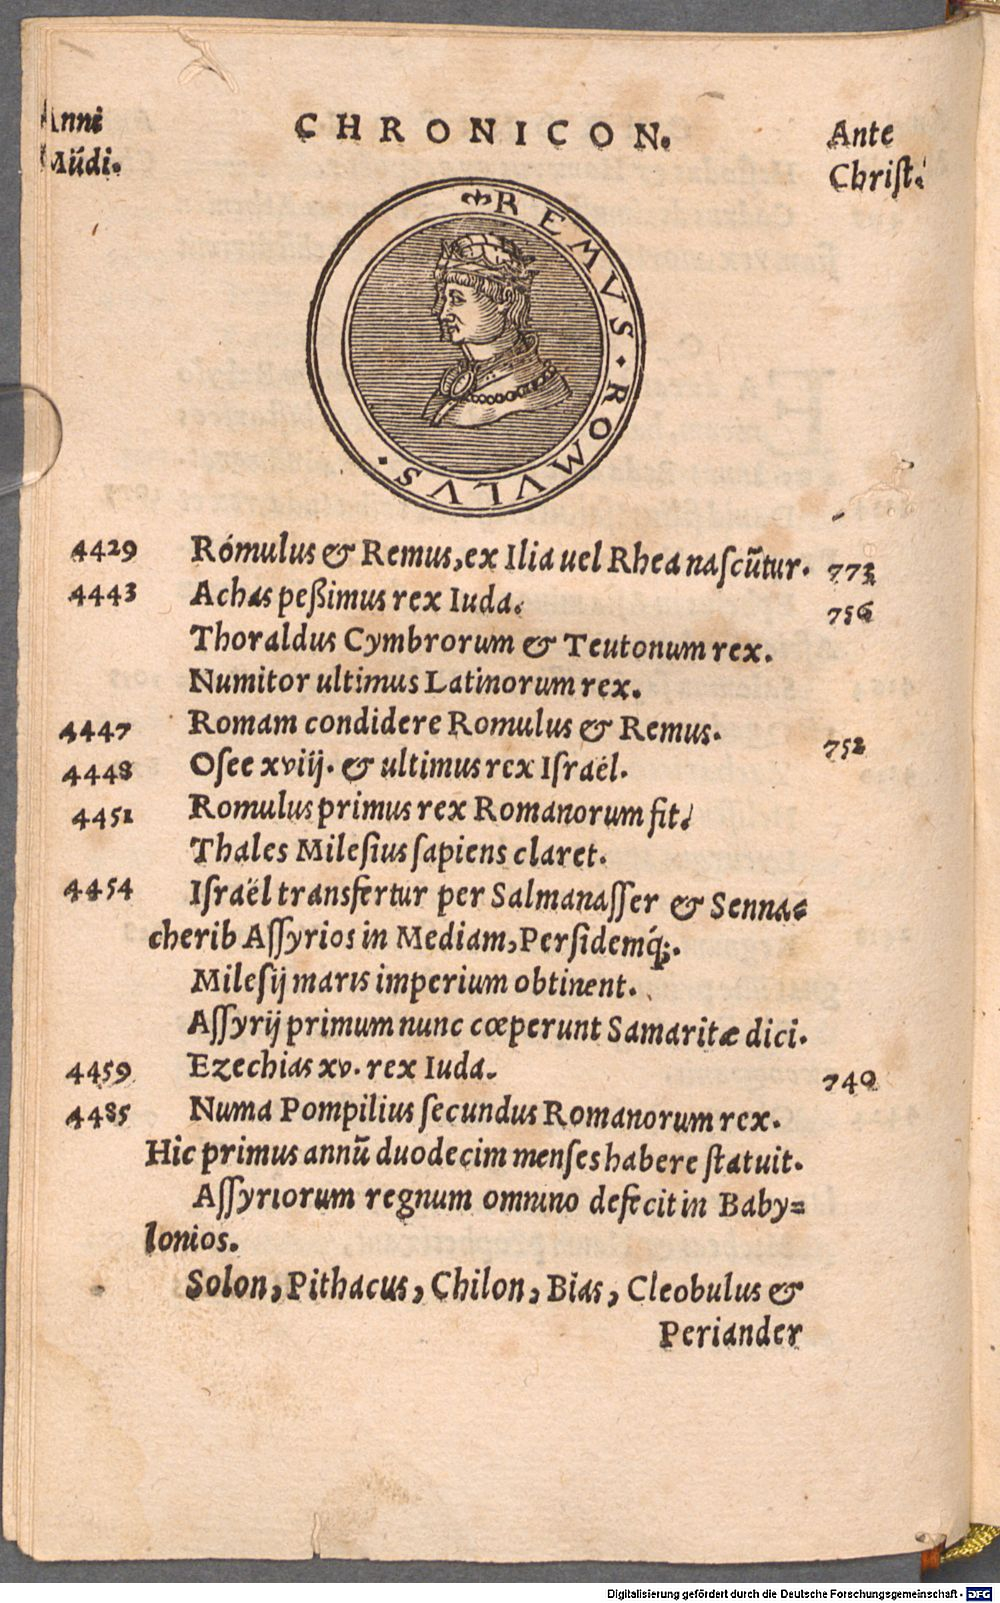 Anni
Mũdi.
CHRONICON.
Ante
Chriſt.
REMVS · ROMVLVS ·
4429 Rómulus & Remus, ex Ilia uel Rhea naſcũtur. 773
4443 Achas peßimus rex Iuda. 756
Thoraldus Cymbrorum & Teutonum rex.
Numitor ultimus Latinorum rex.
4447 Romam condidere Romulus & Remus. 752
4448 Oſee xviij. & ultimus rex Iſraël.
4451 Romulus primus rex Romanorum fit.
Thales Mileſius ſapiens claret.
4454 Iſraël transfertur per Salmanaſſer & Senna⸗
cherib Aſſyrios in Mediam, Perſidemq́;.
Mileſij maris imperium obtinent.
Aſſyrij primum nunc cœperunt Samaritæ dici.
4459 Ezechias xv. rex Iuda. 740
4485 Numa Pompilius ſecundus Romanorum rex.
Hic primus annũ duodecim menſes habere ſtatuit.
Aſſyriorum regnum omnino defecit in Baby⸗
lonios.
Solon, Pithacus, Chilon, Bias, Cleobulus &
Periander
Digitalisierung gefördert durch die Deutsche Forschungsgemeinschaft - DFG